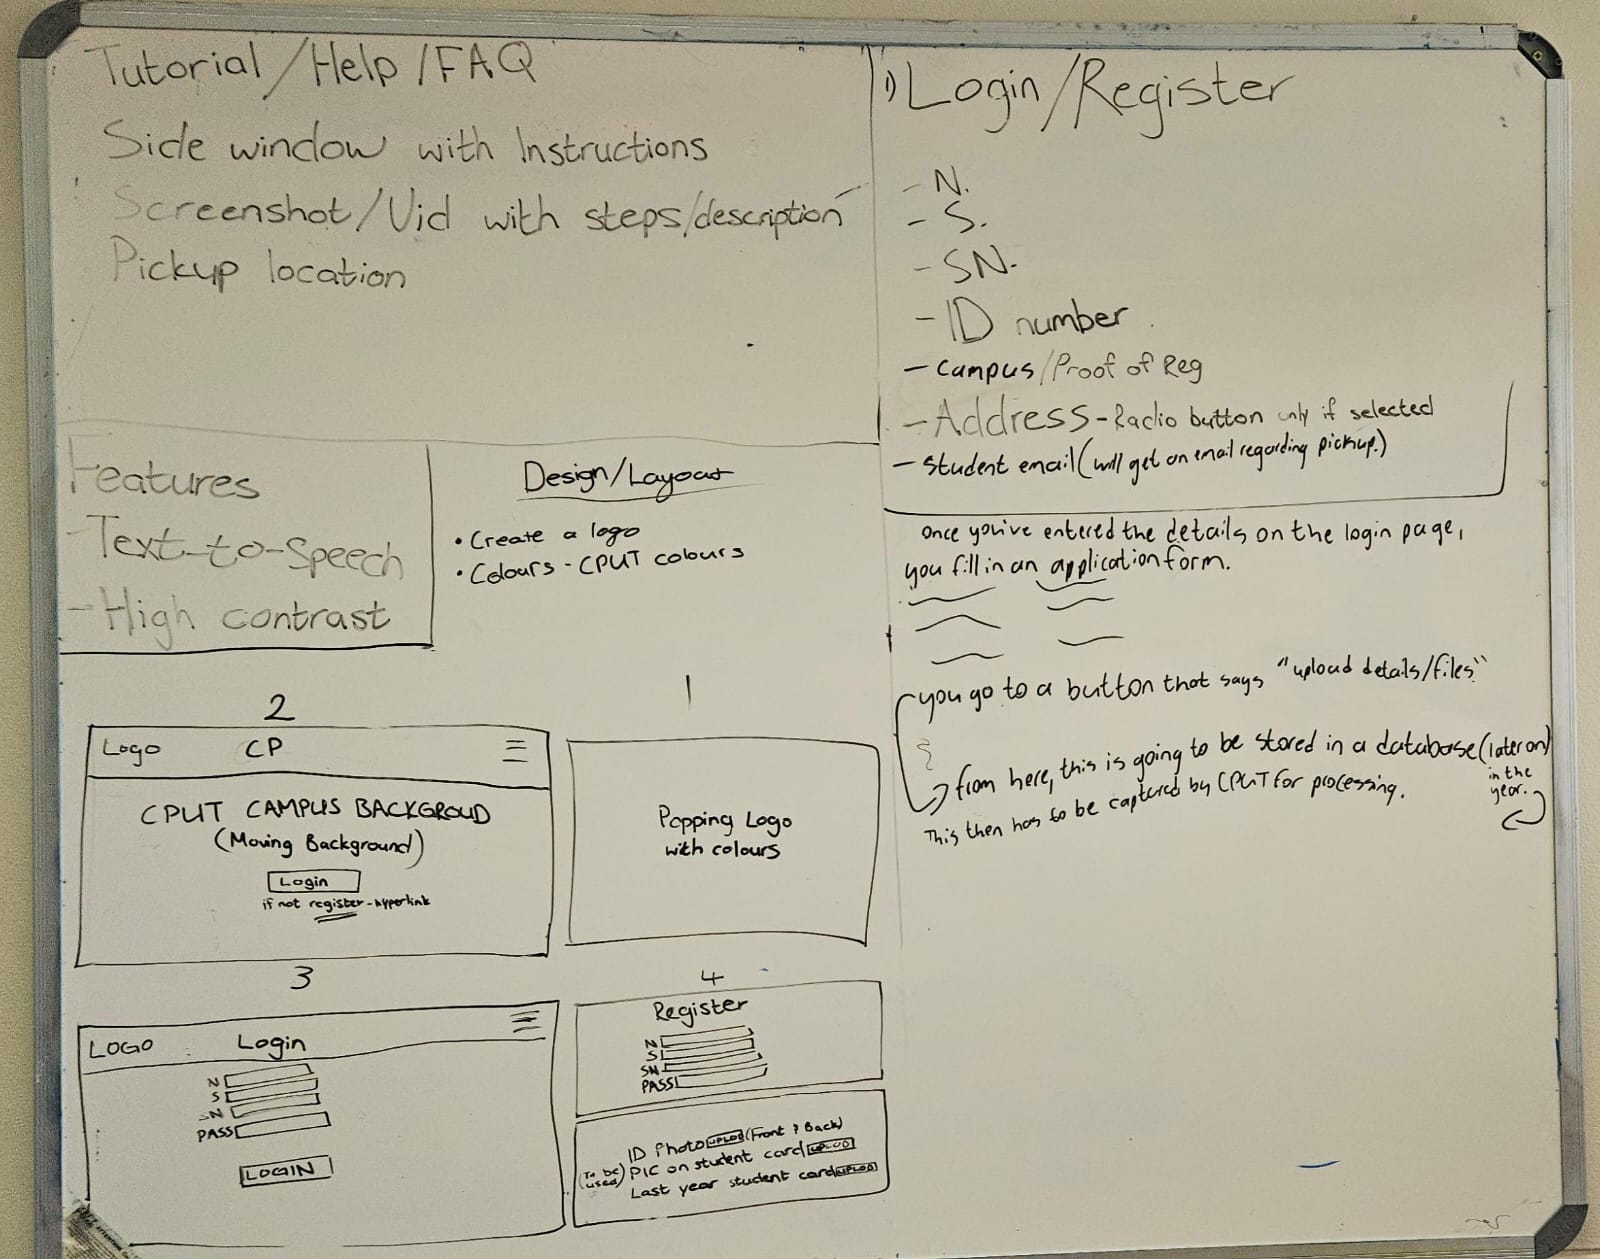 Tutorial/Help/FAQ
Side window with Instructions
Screenshot/Vid with steps/description
Pickup location
Features
-Text-to-Speech
-High contrast
Design/Layout
• Create a logo
• Colours - CPUT colours
2
Logo CP
CPUT CAMPUS BACKGROUD
(Moving Background)
Login
if not register-hyperlink
1
Popping Logo
with colours
3
LOGO Login
N
S
SN
PASS
LOGIN
4
Register
N
S
SN
PASS
ID Photo UPLOD (Front & Back)
(To be used) PIC on student card UPLOD
Last year student card UPLOD
1) Login/Register
- N.
- S.
- SN.
- ID number
- Campus/Proof of Reg
- Address - Radio button only if selected
- Student email (will get an email regarding pickup.)
Once you've entered the details on the login page,
you fill in an application form.
you go to a button that says "upload details/files"
from here, this is going to be stored in a database (later on)
in the
year.
This then has to be captured by CPUT for processing.